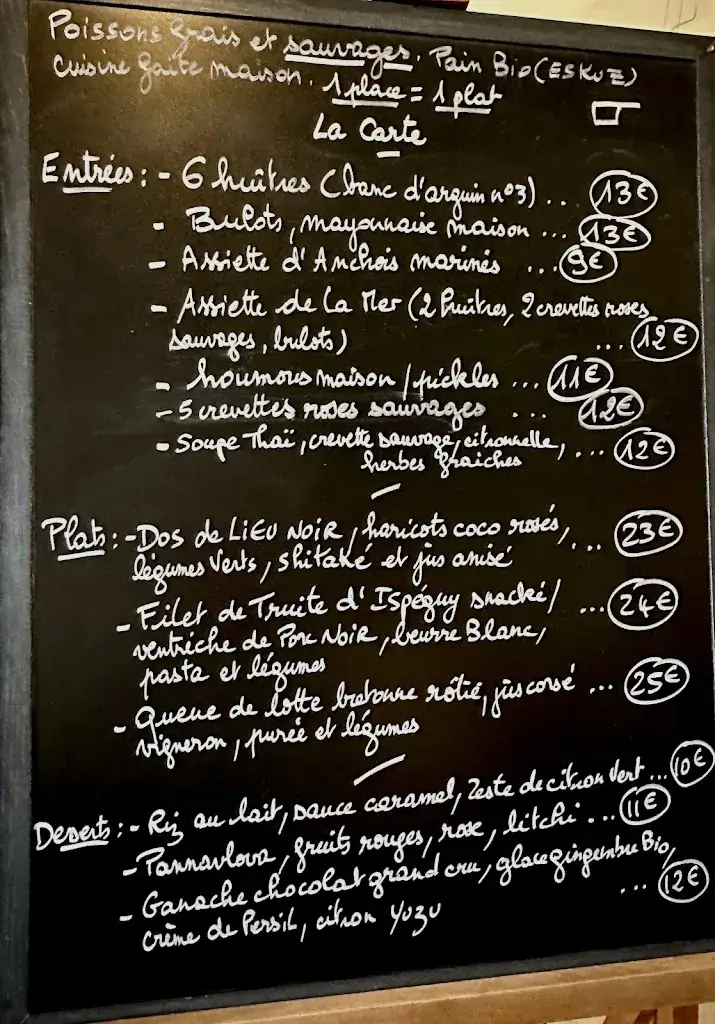 Poissons frais et sauvages. Pain Bio (ESKUZ)
Cuisine faite maison. 1 place = 1 plat
La Carte
Entrées : - 6 huîtres (banc d'arguin n°3) ... 13€
- Bulots, mayonnaise maison ... 13€
- Assiette d'Anchois marinés ... 9€
- Assiette de La Mer (2 huîtres, 2 crevettes roses
sauvages, bulots) ... 12€
- houmous maison / pickles ... 11€
- 5 crevettes roses sauvages ... 12€
- Soupe Thaï, crevette sauvage, citronnelle, ... 12€
herbes fraiches
Plats : - Dos de LiEU NOiR, haricots coco rosés, ... 23€
légumes Verts, shitaké et jus anisé
- Filet de Truite d'Ispéguy snacké / ... 24€
ventrèche de Porc NoiR, beurre Blanc,
pasta et légumes
- Queue de lotte bretonne rôtie, jus corsé ... 25€
vigneron, purée et légumes
Deserts : - Riz au lait, sauce caramel, Zeste de citron Vert ... 10€
- Pannavlova, fruits rouges, rose, litchi ... 11€
- Ganache chocolat grand cru, glace gingembre Bio,
crème de Persil, citron Yuzu ... 12€